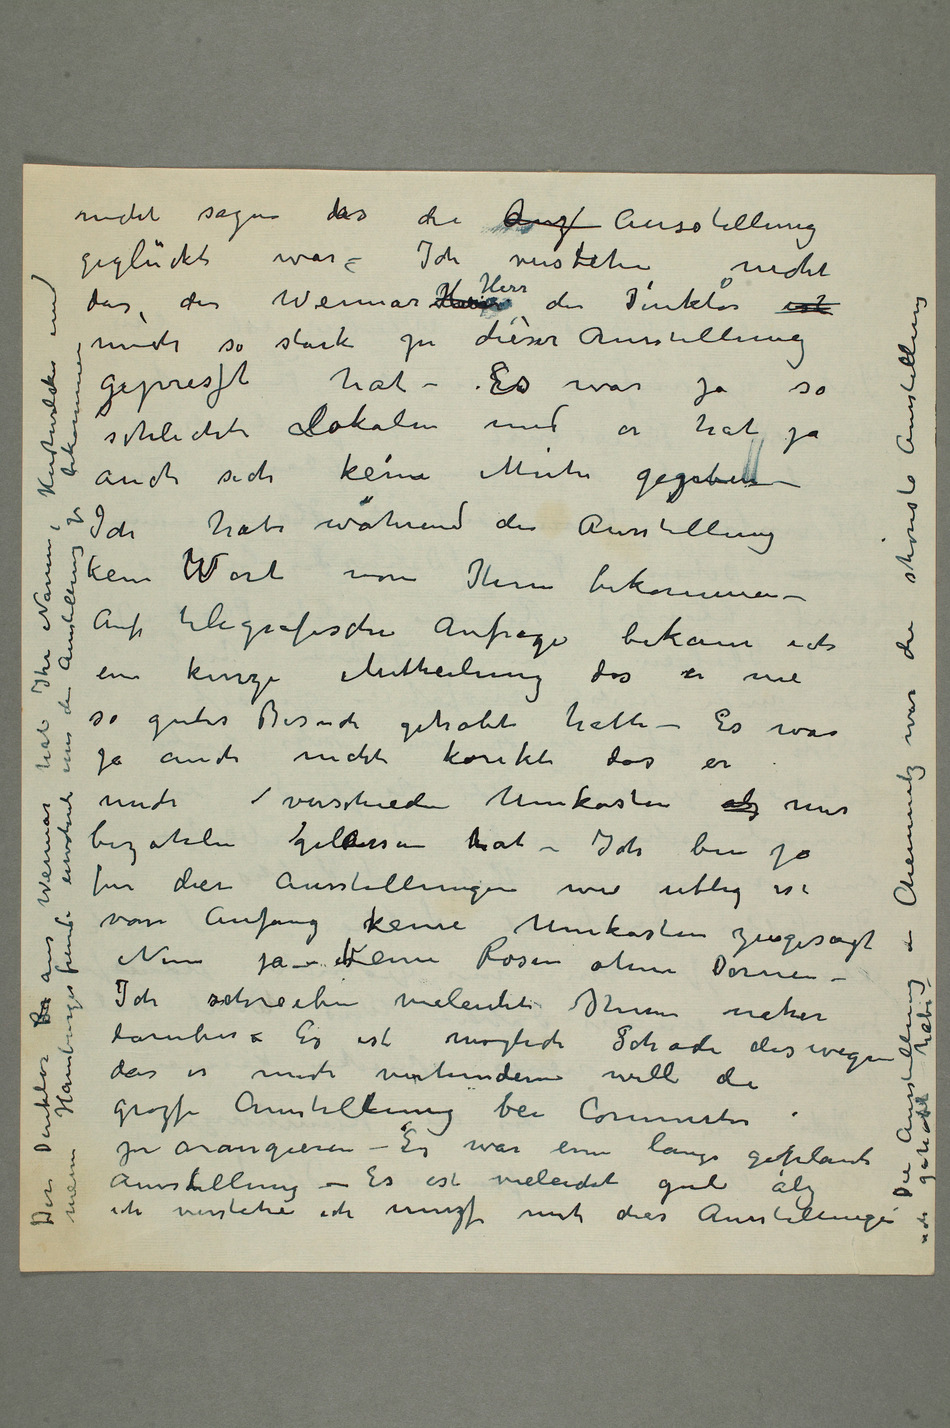 nicht sagen das die Anzf Ausstellung
geglückt war – Ich verstehe nicht
das, der Weimar Herr der Direktör ist
mich so stark zu dieser Ausstellung
gepresft hat – Es war ja so
schlechte Lokalen und er hat ja
auch sich keine Mühe gegeben –
Ich habe während der Ausstellung
kein Wort von Ihm bekommen –
Auf telegrafische Anfrage bekam ich
ein kurze Mittheilung das er nie
so guter Besuch gehabt hatte – Es war
ja auch nicht korrekt das er
mich verschieden Unkosten als mir
bezahlen gelassen hat – Ich bin ja
für diese Ausstellungen wie üblig ist
vom Anfang keine Unkosten zugesagt
Nun ja – Keine Rosen ohne Dornen –
Ich schreiben vieleicht Ihnen näher
darüber – Es ist möglich Schade deswegen
das er mich verhindern will die
grozfe Ausstellung bei Commeter
zu arangieren – Es war eine lange geplante
Ausstellung – Es ist vieleicht gut alz
ich verstehe ich muzf mit dies Ausstellungen
Der Direktor aus Weimar hat Ihr Namen, Kestners und
mein Hamburger Freunde benutzt um die Ausstellung zu bekommen
Die Ausstellung in Chemnitz war die schönste Ausstellung
ich gehabt habe –